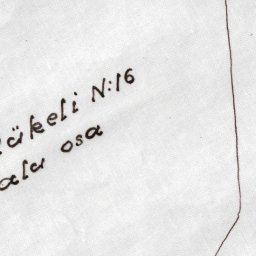 äkeli N:16
ala osa